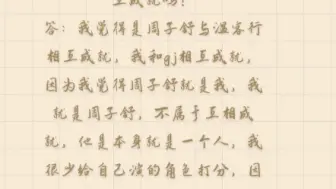 互成就吗？
答：我觉得是周子舒与温客行
相互成就，我和gj相互成就，
因为我觉得周子舒就是我，我
就是周子舒，不属于互相成
就，他是本身就是一个人，我
很少给自己演的角色打分，因